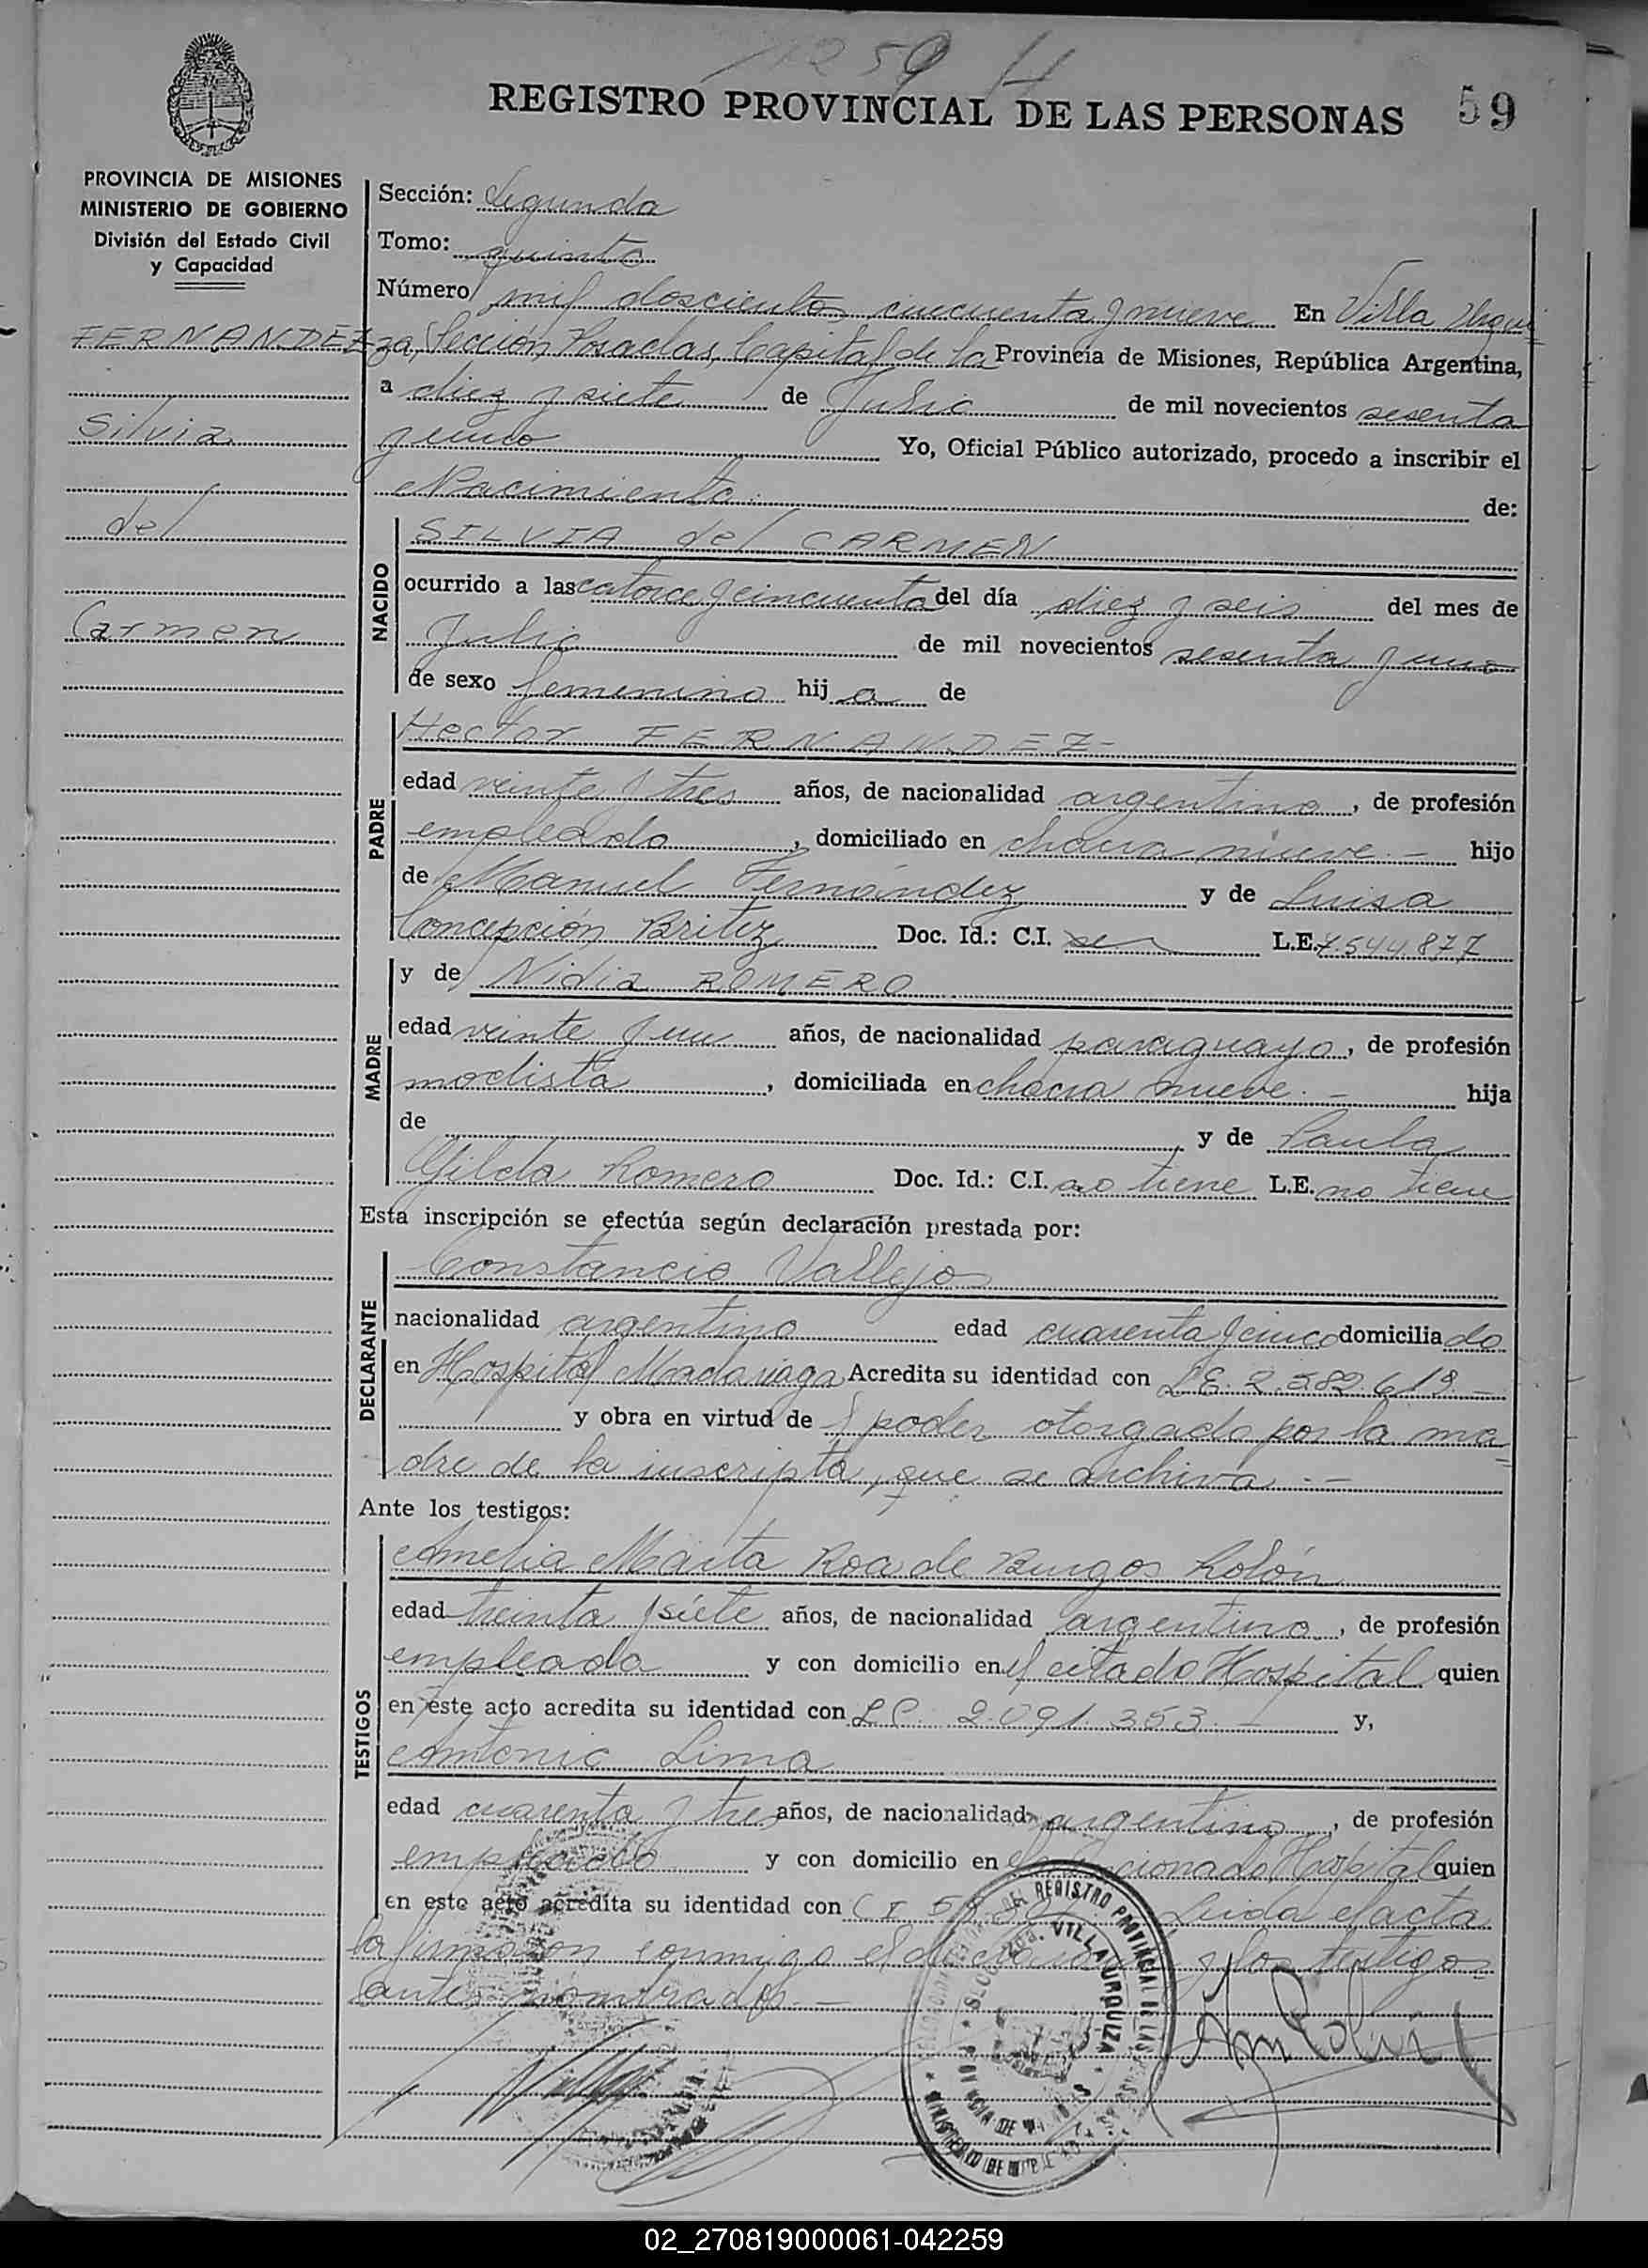 1259 H
REGISTRO PROVINCIAL DE LAS PERSONAS 59
PROVINCIA DE MISIONES
MINISTERIO DE GOBIERNO
División del Estado Civil
y Capacidad
FERNANDEZ
Silvia
del
Carmen
Sección: Segunda
Tomo: quinto
Número mil doscientos cincuenta y nueve En Villa Urqui
za, Sección Posadas, Capital de la Provincia de Misiones, República Argentina,
a diez y siete de Julio de mil novecientos sesenta
y uno Yo, Oficial Público autorizado, procedo a inscribir el
Nacimiento de:
NACIDO
SILVIA del CARMEN
ocurrido a las catorce y cincuenta del día diez y seis del mes de
Julio de mil novecientos sesenta y uno
de sexo femenino hij a de
PADRE
Hector FERNANDEZ-
edad veinte y tres años, de nacionalidad argentino, de profesión
empleado, domiciliado en chacra nueve.- hijo
de Manuel Fernández y de Luisa
Concepción Britez Doc. Id.: C.I. L.E. 7.544.877
MADRE
y de Nidia ROMERO
edad veinte y un años, de nacionalidad paraguayo, de profesión
modista, domiciliada en chacra nueve.- hija
de y de Paula
Gilda Romero Doc. Id.: C.I. no tiene L.E. no tiene
Esta inscripción se efectúa según declaración prestada por:
DECLARANTE
Constancio Vallejos
nacionalidad argentino edad cuarenta y cinco domiciliado
en Hospital Madariaga Acredita su identidad con L.E. 2.582.618.-
y obra en virtud de poder otorgado por la ma
dre de la inscripta, que se archiva.-
Ante los testigos:
TESTIGOS
Amelia Marta Roa de Burgos Rolón
edad treinta y siete años, de nacionalidad argentina, de profesión
empleada y con domicilio en el citado Hospital quien
en este acto acredita su identidad con L.C. 2.091.353.- y,
Antonio Lima
edad cuarenta y tres años, de nacionalidad argentino, de profesión
empleado y con domicilio en el mencionado Hospital quien
en este acto acredita su identidad con C I Leida el acta
la firman conmigo el declarante y los testigos
antes nombrados.-
DEL REGISTRO PROVINCIAL DE LAS PERSONAS
VILLA URQUIZA
02_270819000061-042259